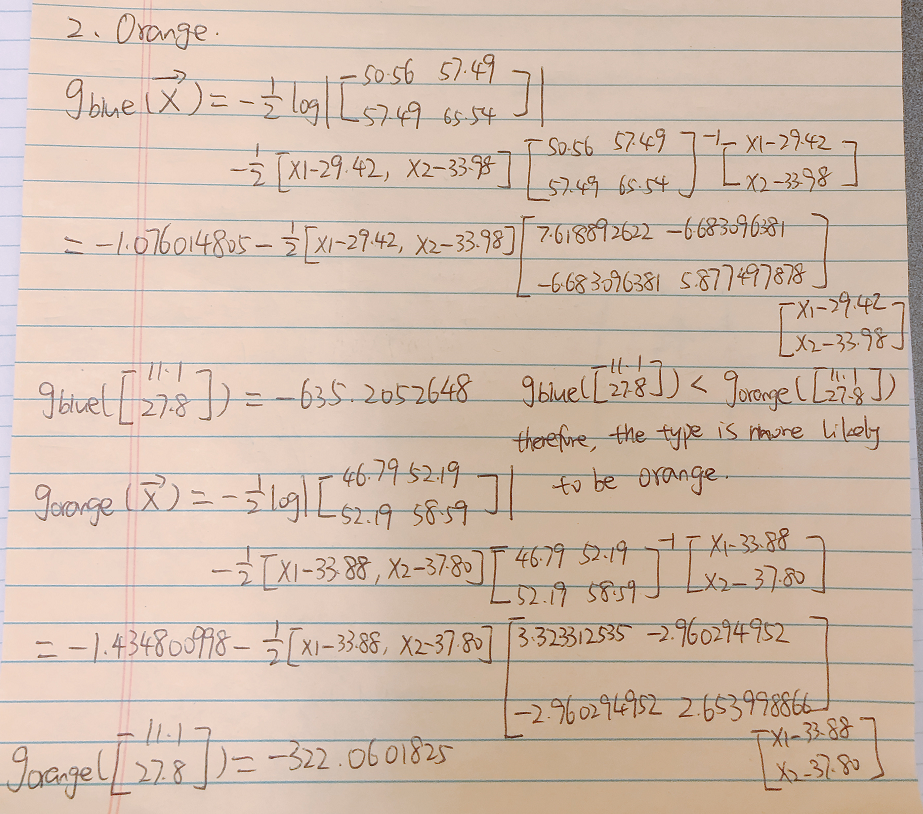 2. Orange.
g_blue(x⃗) = -1/2 log|[50.56 57.49
57.49 65.54]|
-1/2 [x1-29.42, x2-33.98] [50.56 57.49
57.49 65.54]^-1 [x1-29.42
x2-33.98]
= -1.076014805 - 1/2 [x1-29.42, x2-33.98] [7.618892622 -6.683096381
-6.683096381 5.877497878]
[x1-29.42
x2-33.98]
g_blue([11.1
27.8]) = -635.2052648 g_blue([11.1
27.8]) < g_orange([11.1
27.8])
therefore, the type is more likely
to be orange.
g_orange(x⃗) = -1/2 log|[46.79 52.19
52.19 58.59]|
-1/2 [x1-33.88, x2-37.80] [46.79 52.19
52.19 58.59]^-1 [x1-33.88
x2-37.80]
= -1.434800998 - 1/2 [x1-33.88, x2-37.80] [3.323312535 -2.960294952
-2.960294952 2.653998866]
[x1-33.88
x2-37.80]
g_orange([11.1
27.8]) = -322.0601825